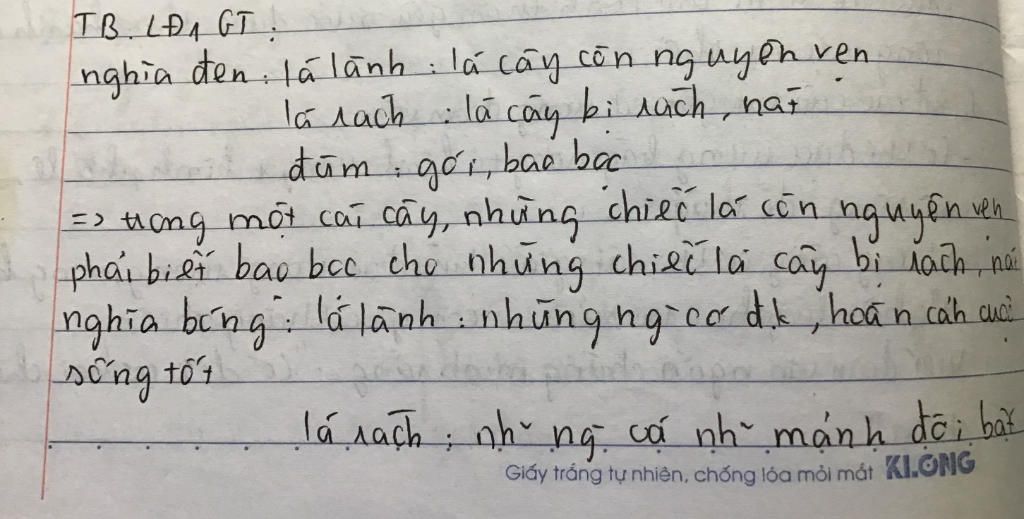 TB. LĐ1 GT:
nghĩa đen: lá lành: lá cây còn nguyên vẹn
lá rách: lá cây bị rách, nát
đùm: gói, bao bọc
=> trong một cái cây, những chiếc lá còn nguyên vẹn
phải biết bao bọc cho những chiếc lá cây bị rách, nát
nghĩa bóng: lá lành: những ng- có đ.k, hoàn cảnh cuộc
sống tốt
lá rách: nh~ ng- có nh~ mảnh đời bất
Giấy trắng tự nhiên, chống lóa mỏi mắt KLONG